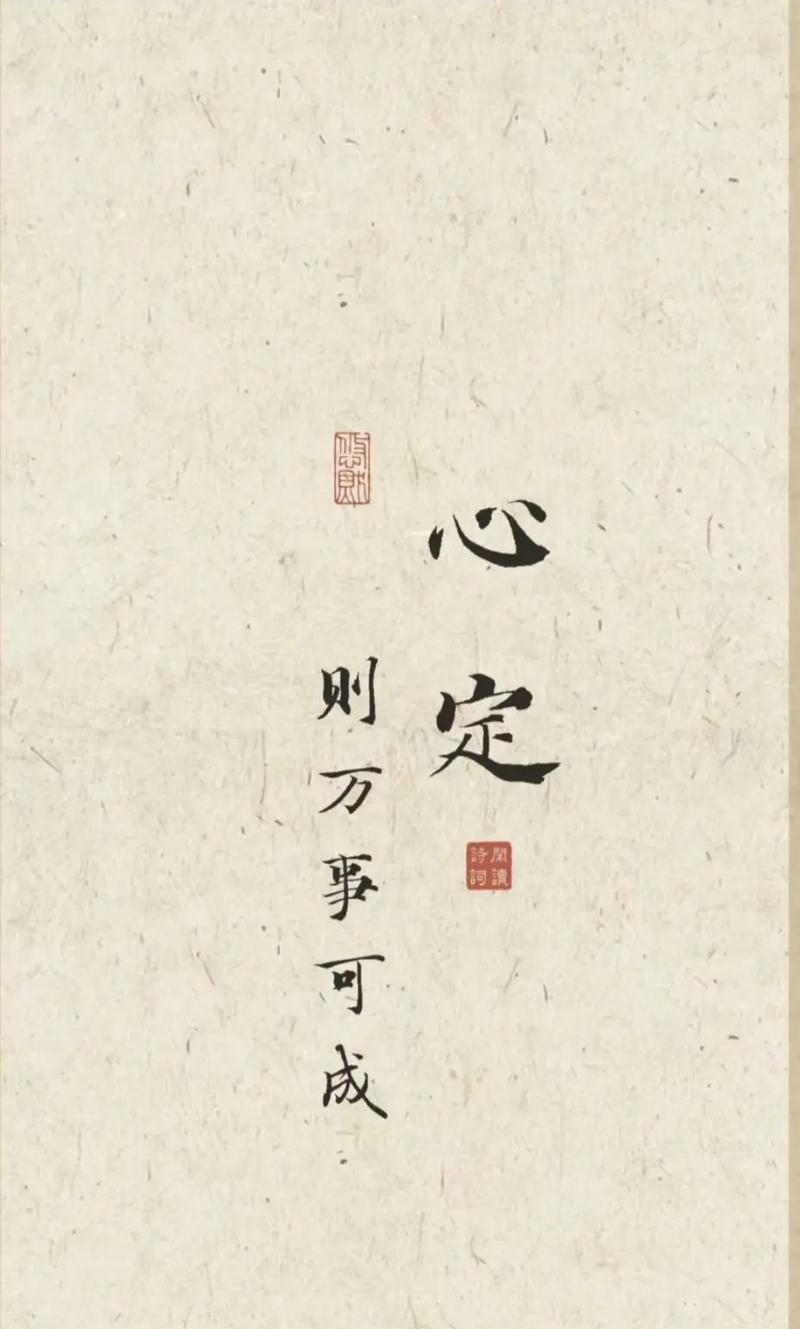 心定
閑讀詩詞
则万事可成